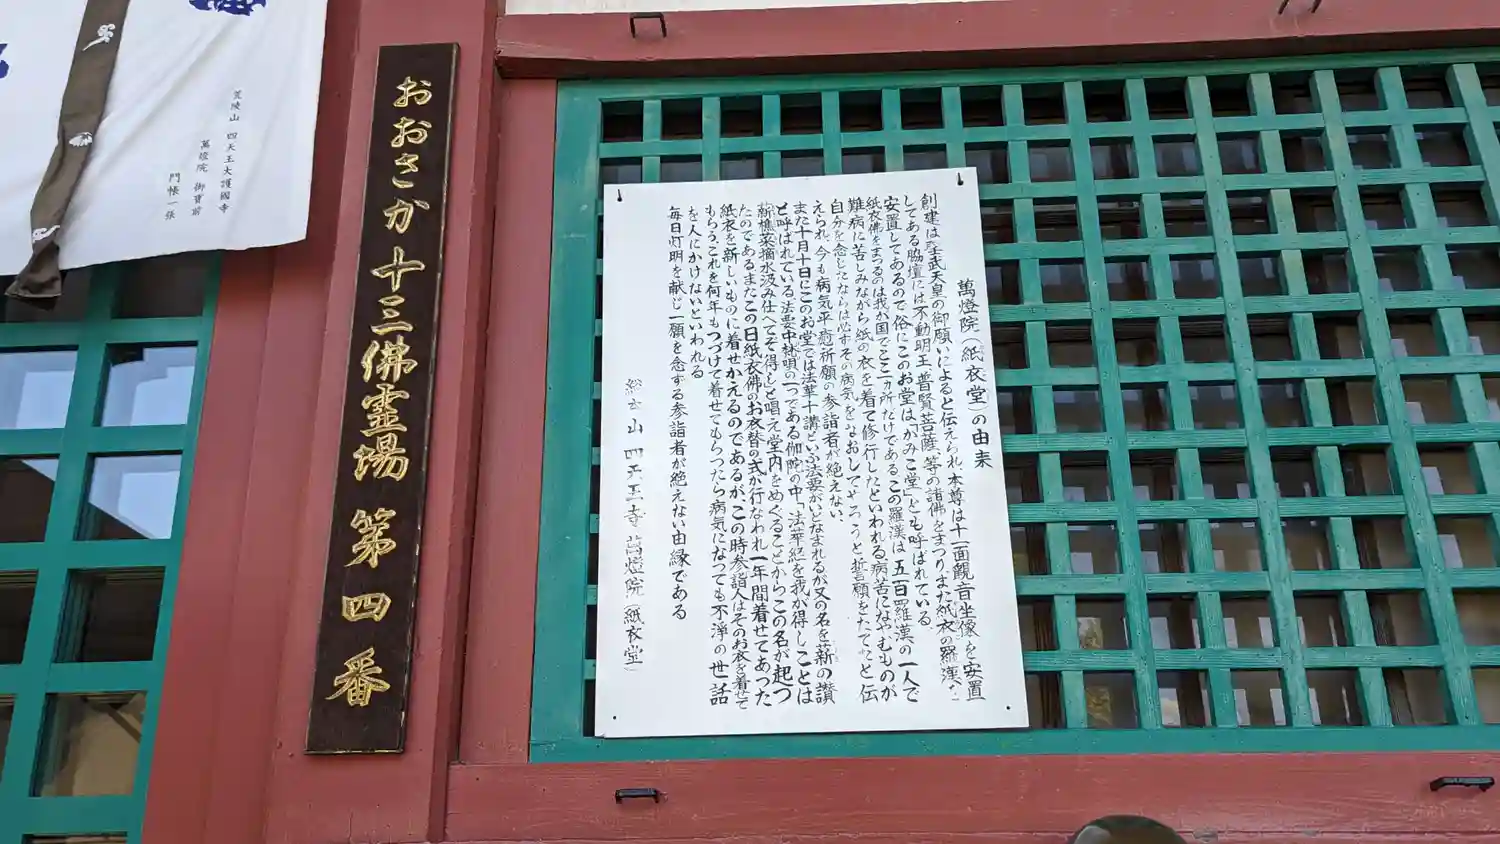 荒陵山 四天王大護國寺
萬燈院 御寳前
門帳一張
おおさか十三佛霊場 第四番
萬燈院(紙衣堂)の由来
創建は聖武天皇の御願いによると伝えられ、本尊は十一面觀音坐像を安置
してある脇壇には不動明王、普賢菩薩、等の諸佛をまつり、また紙衣の羅漢を
安置してあるので俗にこのお堂は、「かみこ堂」とも呼ばれている。
紙衣佛をまつるのは我が国でここ一ヵ所だけである。この羅漢は五百羅漢の一人で
難病に苦しみながら紙の衣を着て修行したといわれる病苦になやむものが
自分を念じたならば必ずその病気をなおしてやろうと誓願をたてたと伝
えられ、今も病気平癒祈願の参詣者が絶えない。
また十月十日にこのお堂では法華十講という法要がいとなまれるが又の名を薪の讃
と呼ばれている。法要中梵唄の一つである伽陀の中、「法華経を我が得しことは
薪樵菜摘水汲み仕へてぞ得し」と唱え堂内をめぐることからこの名が起つ
たのであるまたこの日紙衣佛のお衣替の式が行なわれ一年間着せてあった
紙衣を新しいものに着せかえるのであるが、この時参詣人はそのお衣を着せて
もらうこれを何年もつづけて着せてもらつたら病気になっても不浄の世話
を人にかけないといわれる
毎日灯明を献じ一願を念ずる参詣者が絶えない由縁である
総本山 四天王寺 萬燈院(紙衣堂)